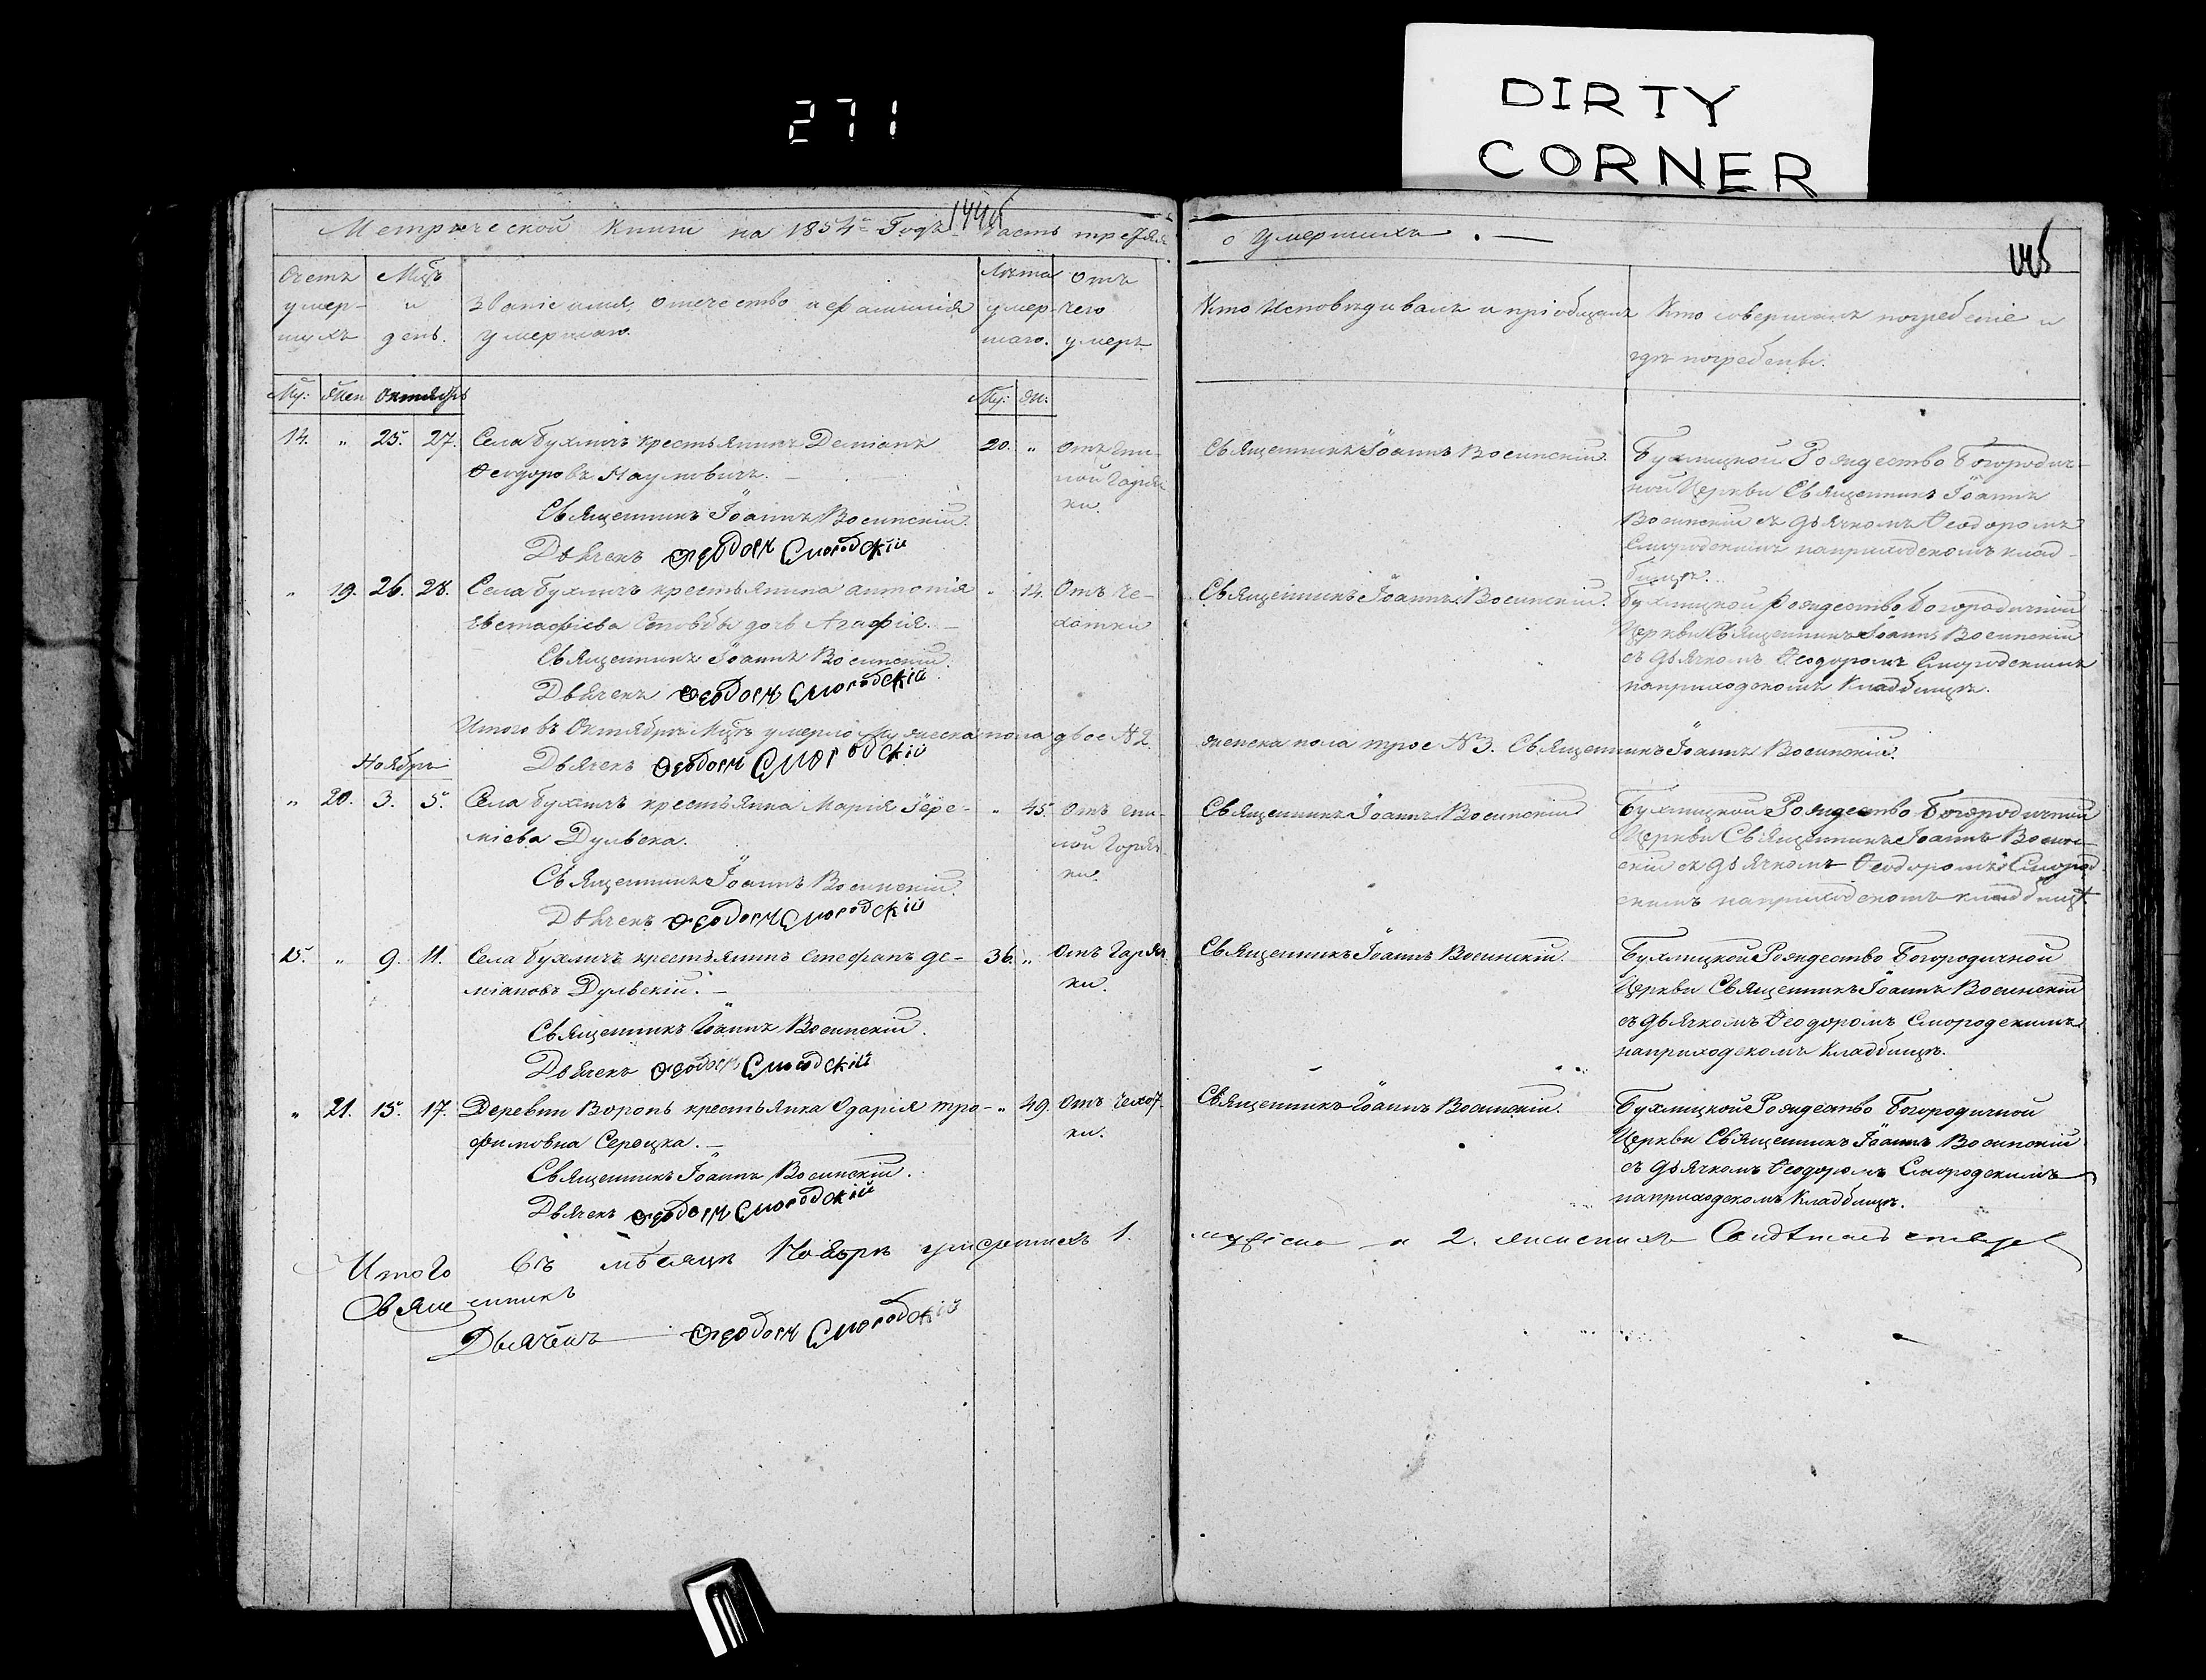 271
DIRTY
CORNER
Метрической Книги на 1854й Годъ Часть третяя
о Умершихъ.
145
Счетъ умер-шихъ
Мцъ и день.
Званіе имя, отечество и фамилія умершаго.
Лѣта умер-шаго.
Отъ чего умеръ
Кто Исповѣдивалъ и пріобщалъ
Кто совершалъ погребеніе и гдѣ погребены.
Му: Жен Октябрь
Му: Ж:
14. " 25. 27. Села Бухличъ крестьянинъ Деміанъ 20. " Отъ гни-
Ѳеодоровъ Наумовичъ. ной Гаряч
ки.
Священникъ Іоаннъ Воеинскій.
Дьячекъ Ѳеодоръ Смородскій
Священникъ Іоаннъ Воеинскій.
Бухлицкой Рождество Богородич-
ной Церкви Священникъ Іоаннъ
Воеинскій съ дьячкомъ Ѳеодоромъ
Смородскимъ наприходскомъ клад-
бищѣ.
" 19. 26. 28. Села Бухличъ крестьянина Антонія " 14. Отъ че-
Евстафіева дочь Агафія. хотки
Священникъ Іоаннъ Воеинскій.
Дьячекъ Ѳеодоръ Смородскій
Священникъ Іоаннъ Воеинскій.
Бухлицкой Рождество Богородичной
Церкви Священникъ Іоаннъ Воеинскій
съ дьячкомъ Ѳеодоромъ Смородскимъ
наприходскомъ Кладбищѣ.
Итого въ Октябрѣ Мцѣ умерло Мужеска пола двое №2. женска пола трое №3. Священникъ Іоаннъ Воеинскій.
Дьячекъ Ѳеодоръ Смородскій
Ноябрь
" 20. 3. 5. Села Бухличъ крестьянка Марія Іере- " 45. Отъ гни-
міева Дульска. ной Горяч
ки.
Священникъ Іоаннъ Воеинскій.
Дьячекъ Ѳеодоръ Смородскій
Священникъ Іоаннъ Воеинскій
Бухлицкой Рождество Богородичной
Церкви Священникъ Іоаннъ Воеин-
скій съ дьячкомъ Ѳеодоромъ Смород-
скимъ наприходскомъ кладбищѣ
15. " 9. 11. Села Бухличъ крестьянинъ Стефанъ Де- 36. " Отъ Гаряч
міановъ Дульскій. ки.
Священникъ Іоаннъ Воеинскій.
Дьячекъ Ѳеодоръ Смородскій
Священникъ Іоаннъ Воеинскій.
Бухлицкой Рождество Богородичной
Церкви Священникъ Іоаннъ Воеинскій
съ дьячкомъ Ѳеодоромъ Смородскимъ
наприходскомъ Кладбищѣ.
" 21. 15. 17. Деревни Воронь крестьянка Одарія Тро- " 49. Отъ Чехот
фимовна Сероцка. ки.
Священникъ Іоаннъ Воеинскій.
Дьячекъ Ѳеодоръ Смородскій
Священникъ Іоаннъ Воеинскій.
Бухлицкой Рождество Богородичной
Церкви Священникъ Іоаннъ Воеинскій
съ дьячкомъ Ѳеодоромъ Смородскимъ
наприходскомъ Кладбищѣ.
Итого въ мѣсяцѣ Ноябрѣ умершихъ 1. и 2. женскихъ
Священникъ
Дьячекъ Ѳеодоръ Смородскій